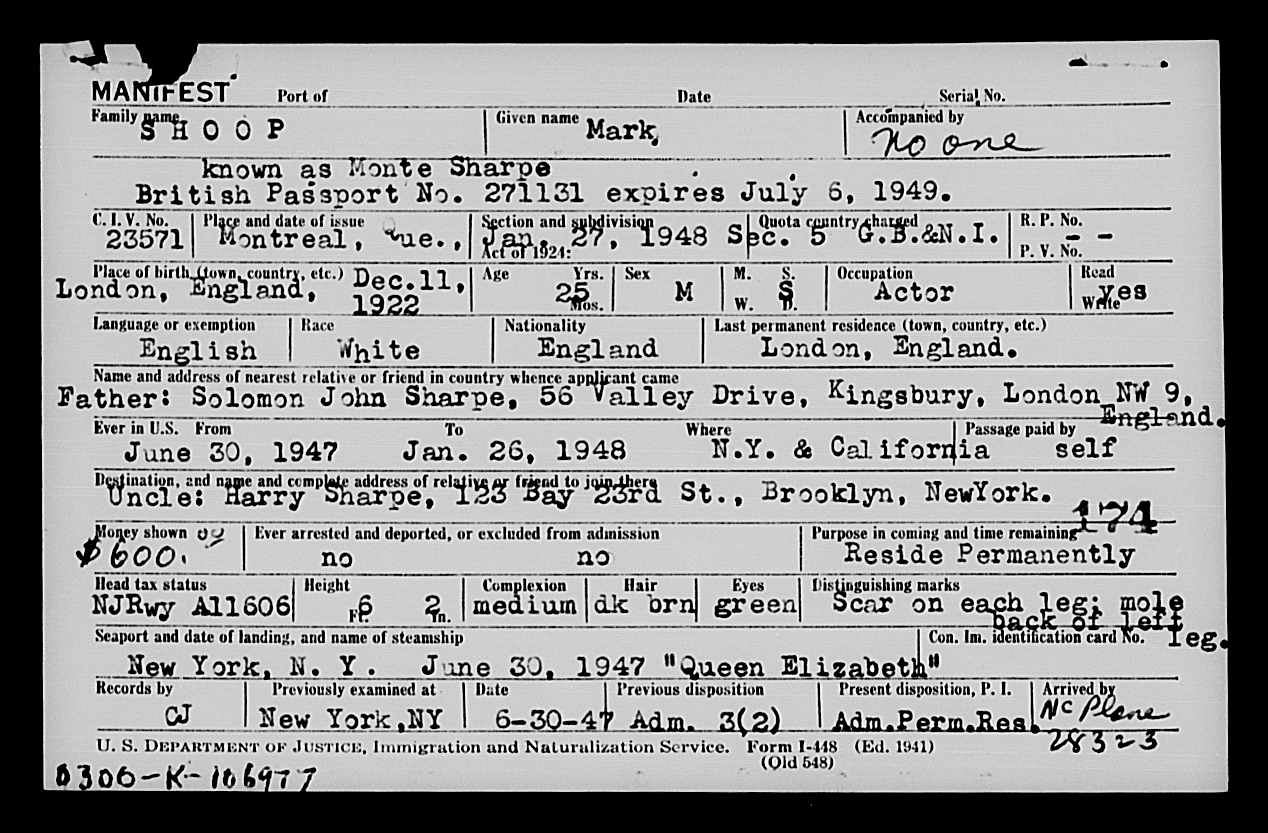 MANIFEST Port of Date Serial No.
Family name SHOOP Given name Mark, Accompanied by No one
known as Monte Sharpe
British Passport No. 271131 expires July 6, 1949.
C. I. V. No. Place and date of issue Section and subdivision Quota country charged R. P. No.
23571 Montreal, Que., Jan. 27, 1948 Sec. 5 G.B.&N.I. - -
Act of 1924: P. V. No.
Place of birth (town, country, etc.) Dec.11, Age Yrs. Sex M. S. Occupation Read
London, England, 1922 25 M S Actor yes
Mos. W. D. Write
Language or exemption Race Nationality Last permanent residence (town, country, etc.)
English White England London, England.
Name and address of nearest relative or friend in country whence applicant came
Father: Solomon John Sharpe, 56 Valley Drive, Kingsbury, London NW 9,
England.
Ever in U.S. From To Where Passage paid by
June 30, 1947 Jan. 26, 1948 N.Y. & California self
Destination, and name and complete address of relative or friend to join there
Uncle: Harry Sharpe, 123 Bay 23rd St., Brooklyn, NewYork.
174
Money shown Ever arrested and deported, or excluded from admission Purpose in coming and time remaining
$600.00 no no Reside Permanently
Head tax status Height Complexion Hair Eyes Distinguishing marks
NJRwy A11606 6 Ft. 2 In. medium dk brn green Scar on each leg; mole
back of left
leg.
Seaport and date of landing, and name of steamship Con. Im. identification card No.
New York, N. Y. June 30, 1947 "Queen Elizabeth"
Records by Previously examined at Date Previous disposition Present disposition, P. I. Arrived by
CJ New York,NY 6-30-47 Adm. 3(2) Adm.Perm.Res. Nc Plane
28323
U. S. Department of Justice, Immigration and Naturalization Service. Form I-448 (Ed. 1941)
(Old 548)
0300-K-106977